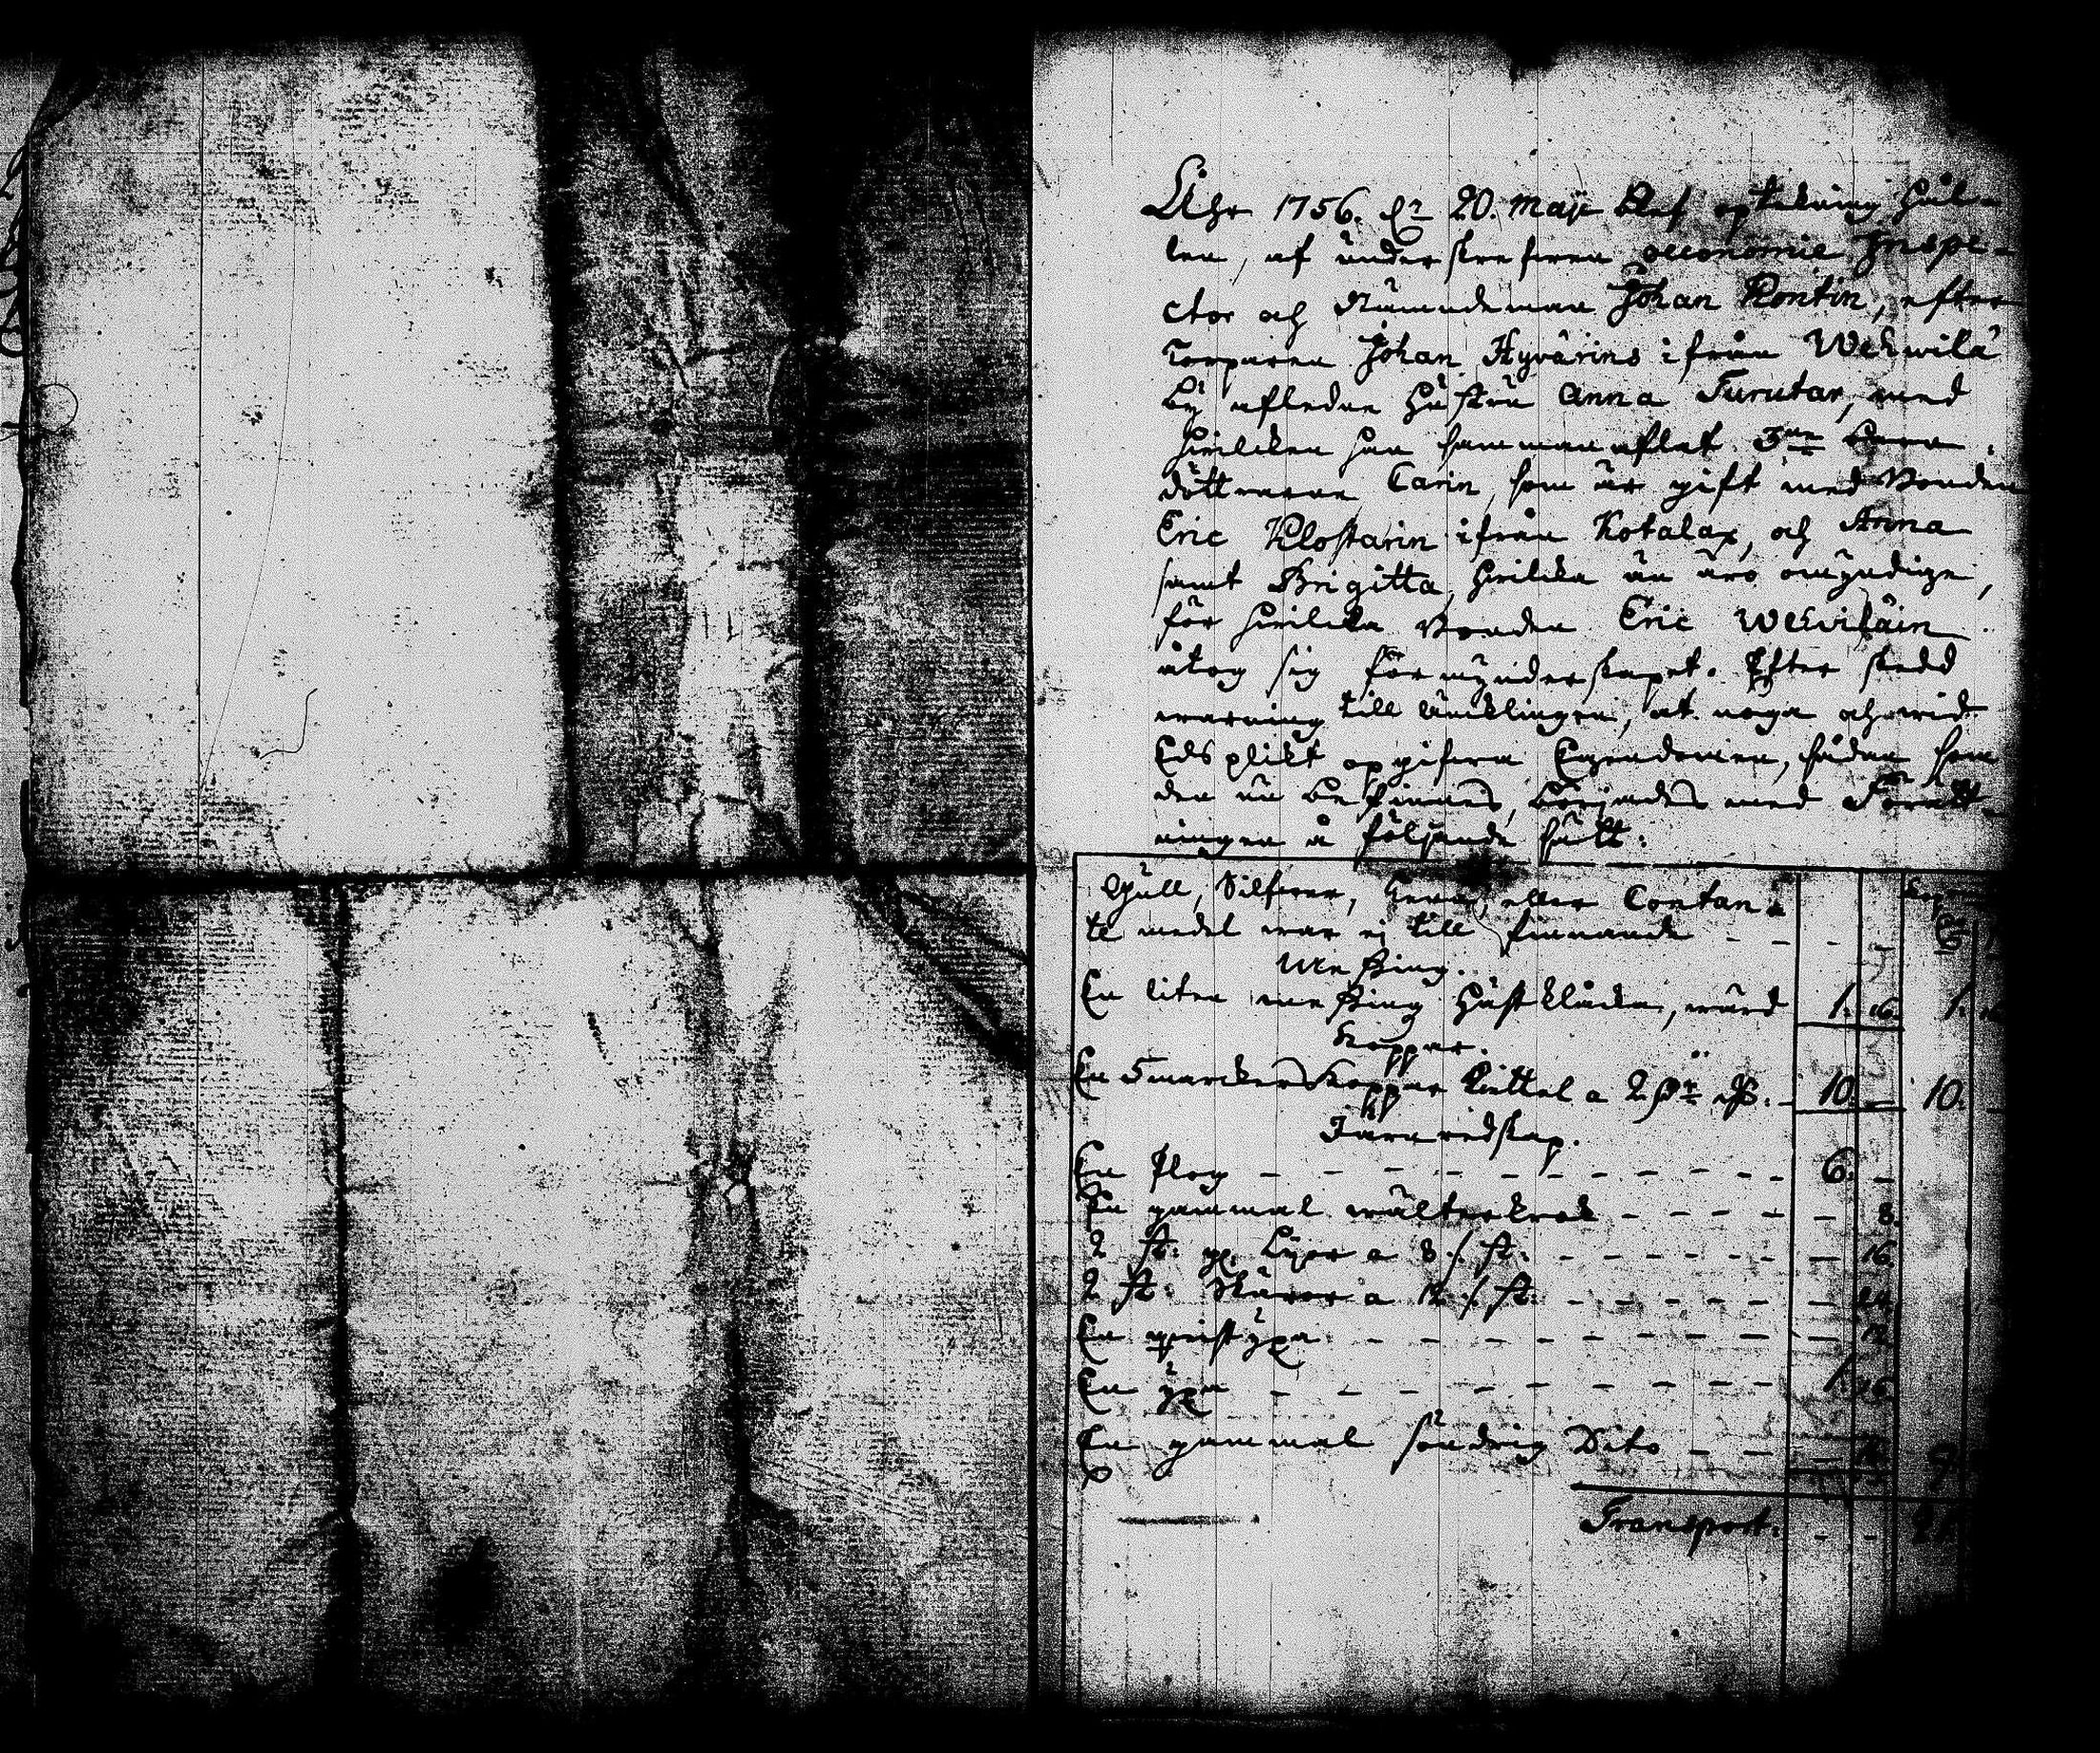 Åhr 1756. d. 20. Maji Blef optekning hål-
len, af underskrefven oeconomie Inspe-
ctor och Nämndeman Johan Rontin, efter
Torparen Johan Hyvärins ifrån Wehwilä
By afledne Hustru Anna Turutar, med
hvilcken han sammanaflat 3ne
döttrarne Carin, som är gift med Bonden
Eric Klostarin ifrån Kotalax, och Anna
samt Brigitta, hvilcka än äro omyndige,
för hvilcka Bonden Eric Wehviläin
åtog sig förmynderskapet. Efter skedd
warning till änklingen, at noga och wid
Eds plikt opgifwa Egendomen, sådan som
den nu befinnes, börjades med Förrätt-
ningen å följande sätt:
Gull, Silfwer, eller Contan-
te medel war ej till finnande - - - -
Messing.
En liten messing Häst klåcka, wärd 1. 16. 1.
Koppar.
En 5 marckers Koppar Kiettel a 2 10. - 10. -
Järnredskap.
En Plog - - - - - - - - - - 6. -
En gammal wälterkrok - - - - - 8.
2 st. g. Lyor a 8 / st. - - - - - 16
2 st. Skäror a 12 / st. - - - - - 24
En qvistyxa - - - - - - - - - 12
En yxa - - - - - - - - - 1. 16
En gammal söndrig Dito - - - 9
Transport. - -